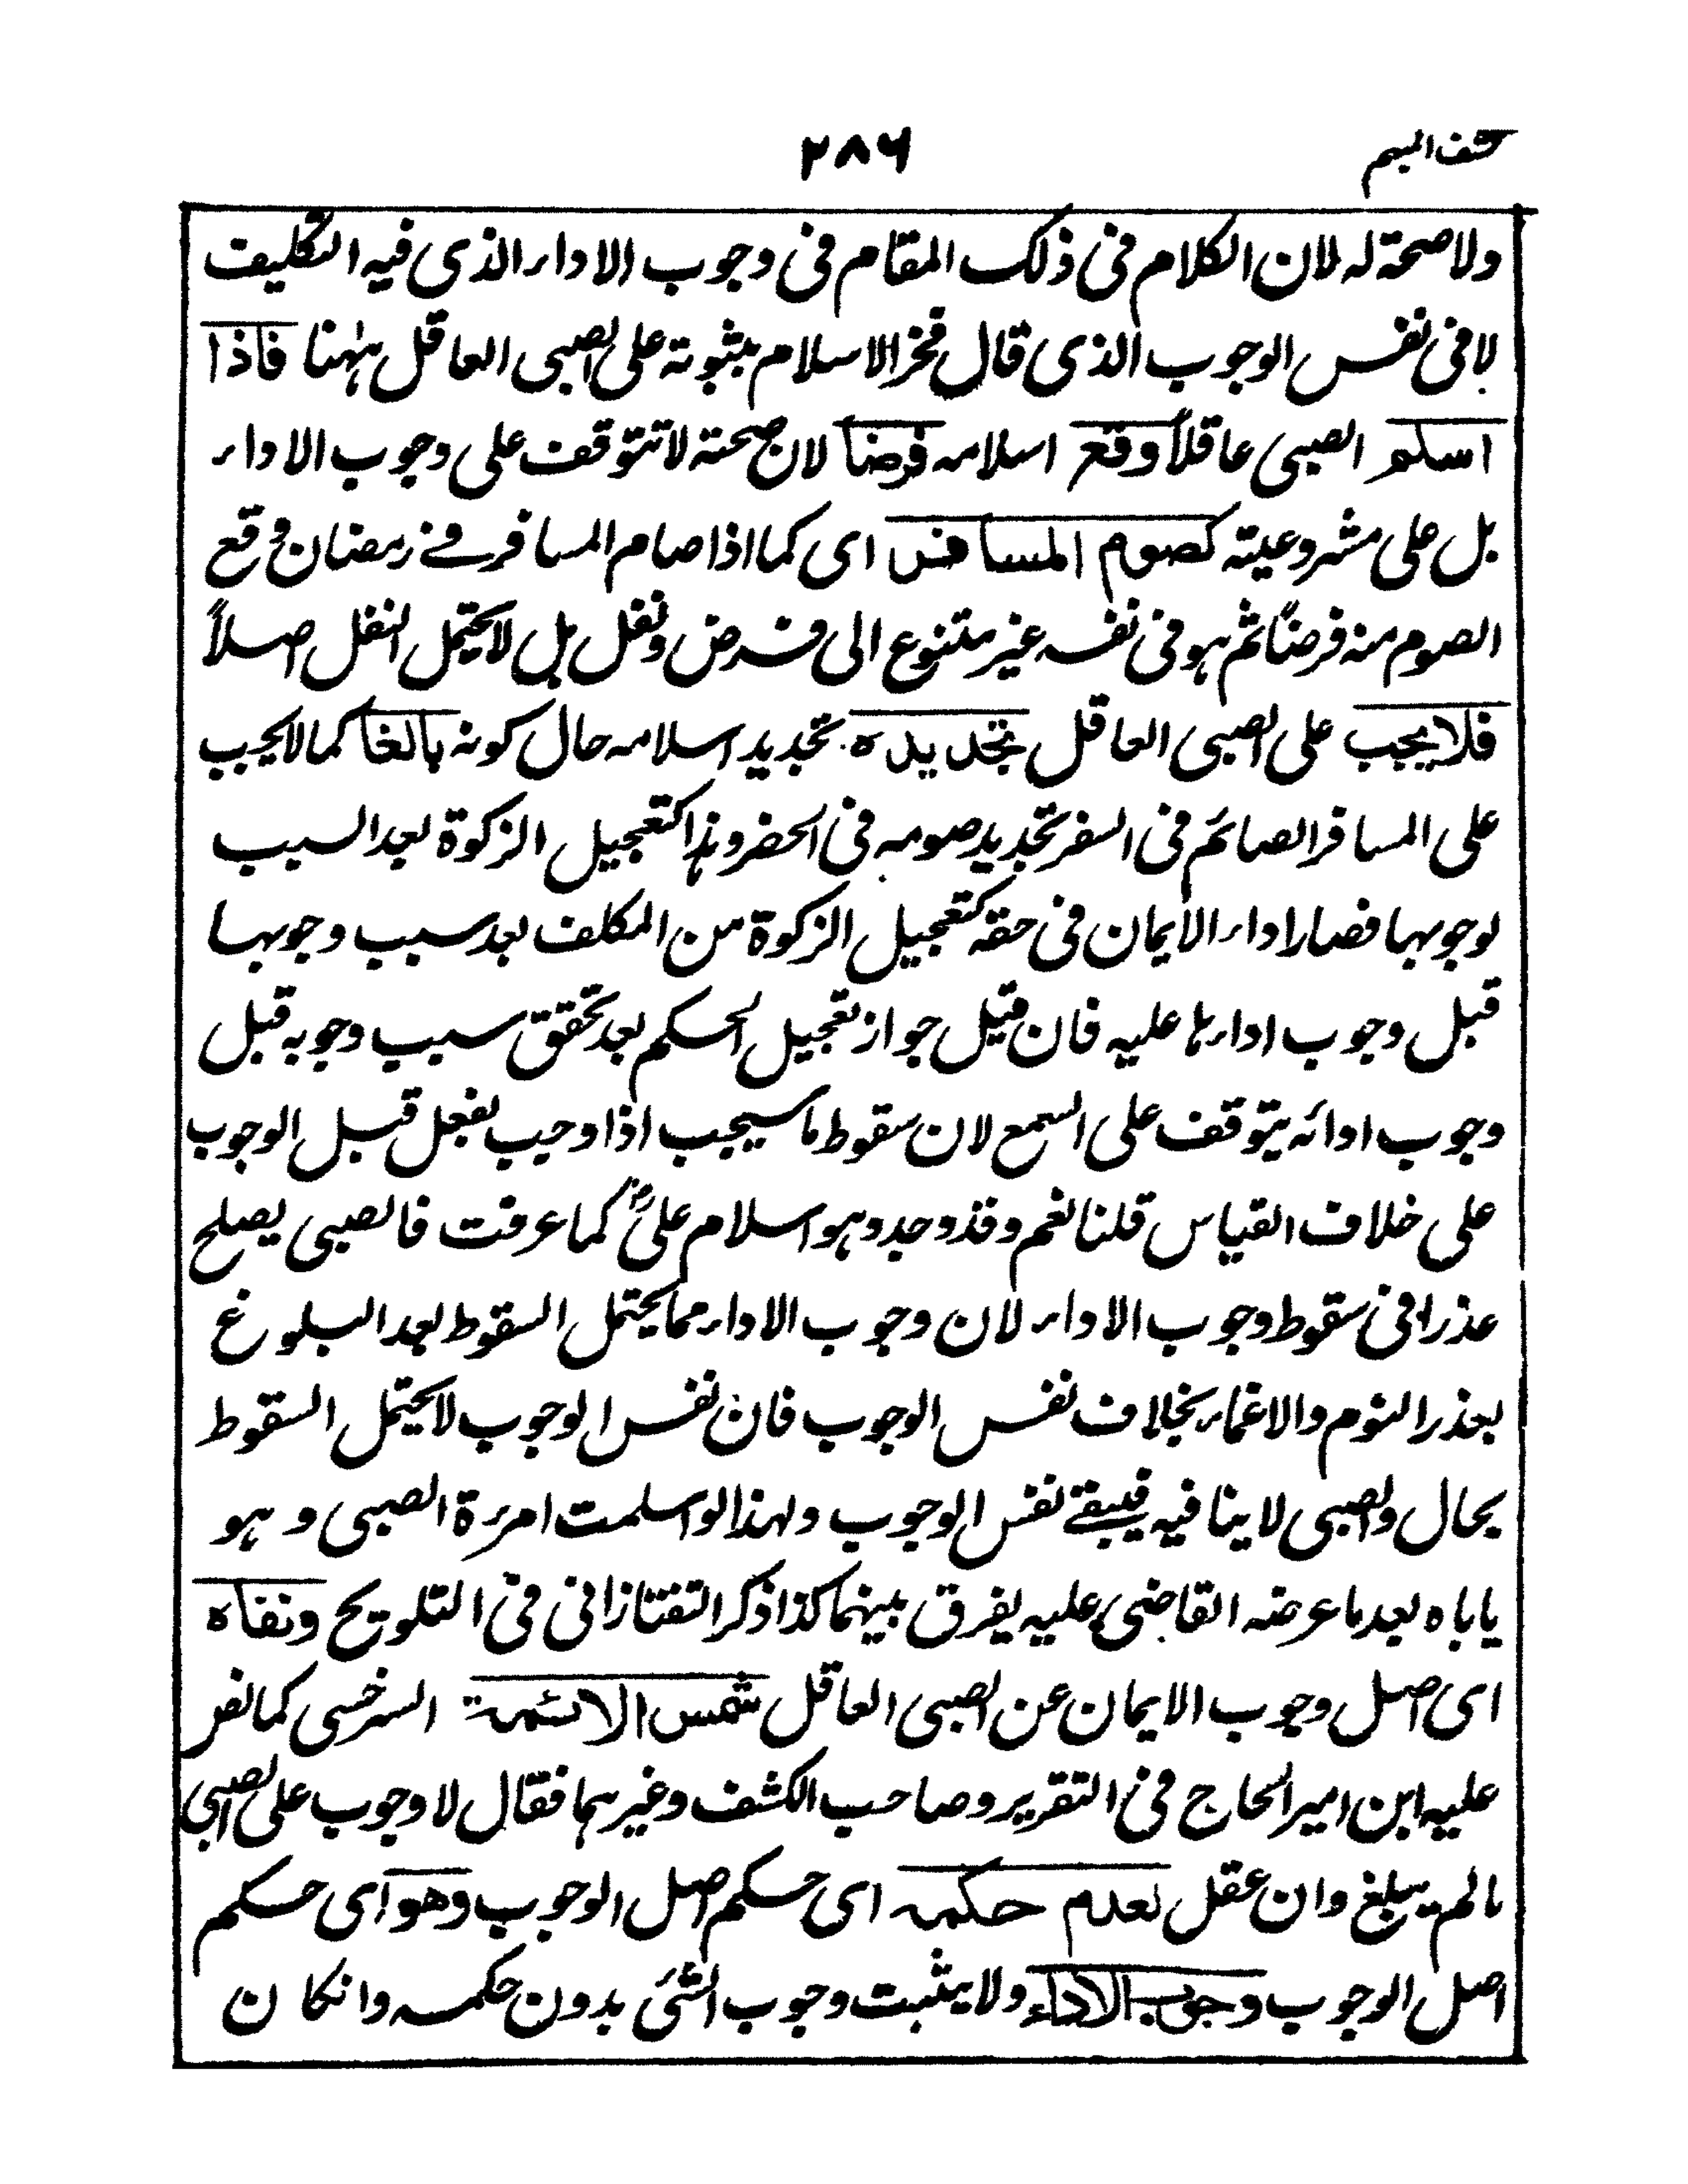 كشف المبهم
٢٨٦
ولا صحة له لان الكلام فى ذلك المقام فى وجوب الاداء الذى فيه التكليف
لا فى نفس الوجوب الذى قال فخر الاسلام بثبوته على الصبى العاقل ههنا فاذا
اسلم الصبى عاقلاً وقع اسلامه فرضا لان صحته لا تتوقف على وجوب الاداء
بل على مشروعيته كصوم المسافر اى كما اذا صام المسافر فى رمضان وقع
الصوم منه فرضاً ثم هو فى نفسه غير متنوع الى فرض ونفل بل لا يحتمل النفل اصلاً
فلا يجب على الصبى العاقل تجديده تجديد اسلامه حال كونه بالغا كما لا يجب
على المسافر الصائم فى السفر تجديد صومه فى الحضر وهذا كتعجيل الزكوة بعد السبب
لوجوبها فصار اداء الايمان فى حقه كتعجيل الزكوة من المكلف بعد سبب وجوبها
قبل وجوب ادائها عليه فان قيل جواز تعجيل الحكم بعد تحقق سبب وجوبه قبل
وجوب ادائه يتوقف على السمع لان سقوط ما سيجب اذا وجب بفعل قبل الوجوب
على خلاف القياس قلنا نعم وقد وجد وهو اسلام علىؓ كما عرفت فالصبى يصلح
عذرا فى سقوط وجوب الاداء لان وجوب الاداء مما يحتمل السقوط بعد البلوغ
بعذر النوم والاغماء بخلاف نفس الوجوب فان نفس الوجوب لا يحتمل السقوط
بحال والصبى لا ينافيه فيبقى نفس الوجوب ولهذا لو اسلمت امرءة الصبى وهو
ياباه بعد ما عرضه القاضى عليه يفرق بينهما كذا ذكر التفتازانى فى التلويح ونفاه
اى اصل وجوب الايمان عن الصبى العاقل شمس الائمة السرخسى كما نص
عليه ابن امير الحاج فى التقرير وصاحب الكشف وغيرهما فقال لا وجوب على الصبى
مالم يبلغ وان عقل لعدم حكمه اى حكم اصل الوجوب وهو اى حكم
اصل الوجوب وجوب الاداء ولا يثبت وجوب الشئ بدون حكمه وانكان